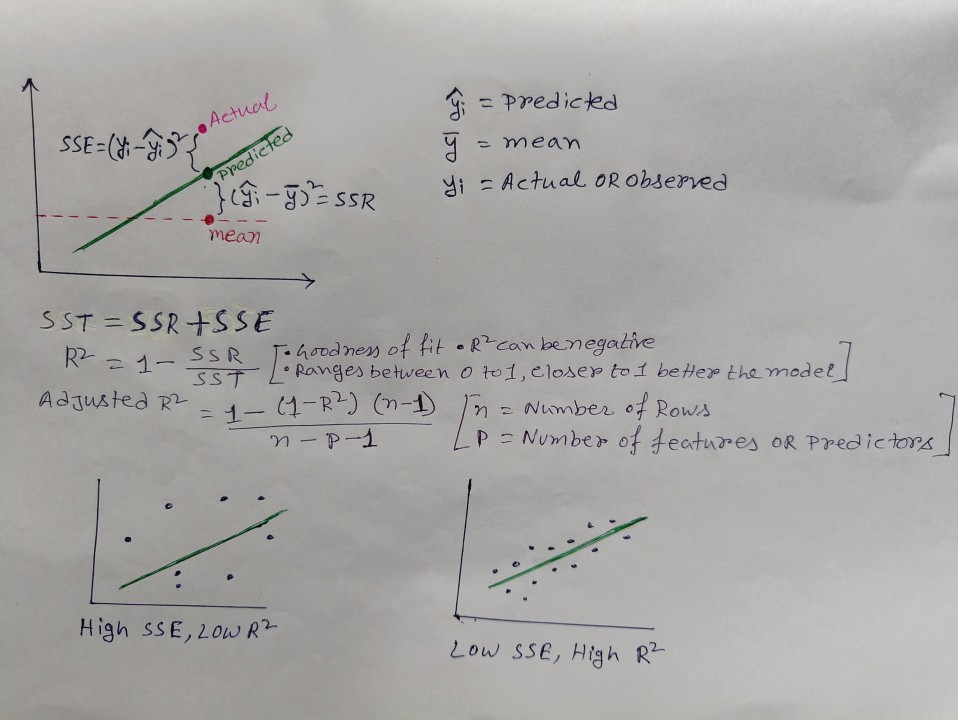 Actual
SSE=(yi-ŷi)²{
predicted
}(ŷi-ȳ)²=SSR
mean
ŷi = Predicted
ȳ = mean
yi = Actual OR Observed
SST = SSR+SSE
R² = 1 - SSR/SST [• Goodness of fit • R² can be negative
• Ranges between 0 to 1, closer to 1 better the model]
Adjusted R² = 1-(1-R²)(n-1)/n-p-1 [n = Number of Rows
P = Number of features OR Predictors]
High SSE, LOW R²
LOW SSE, High R²